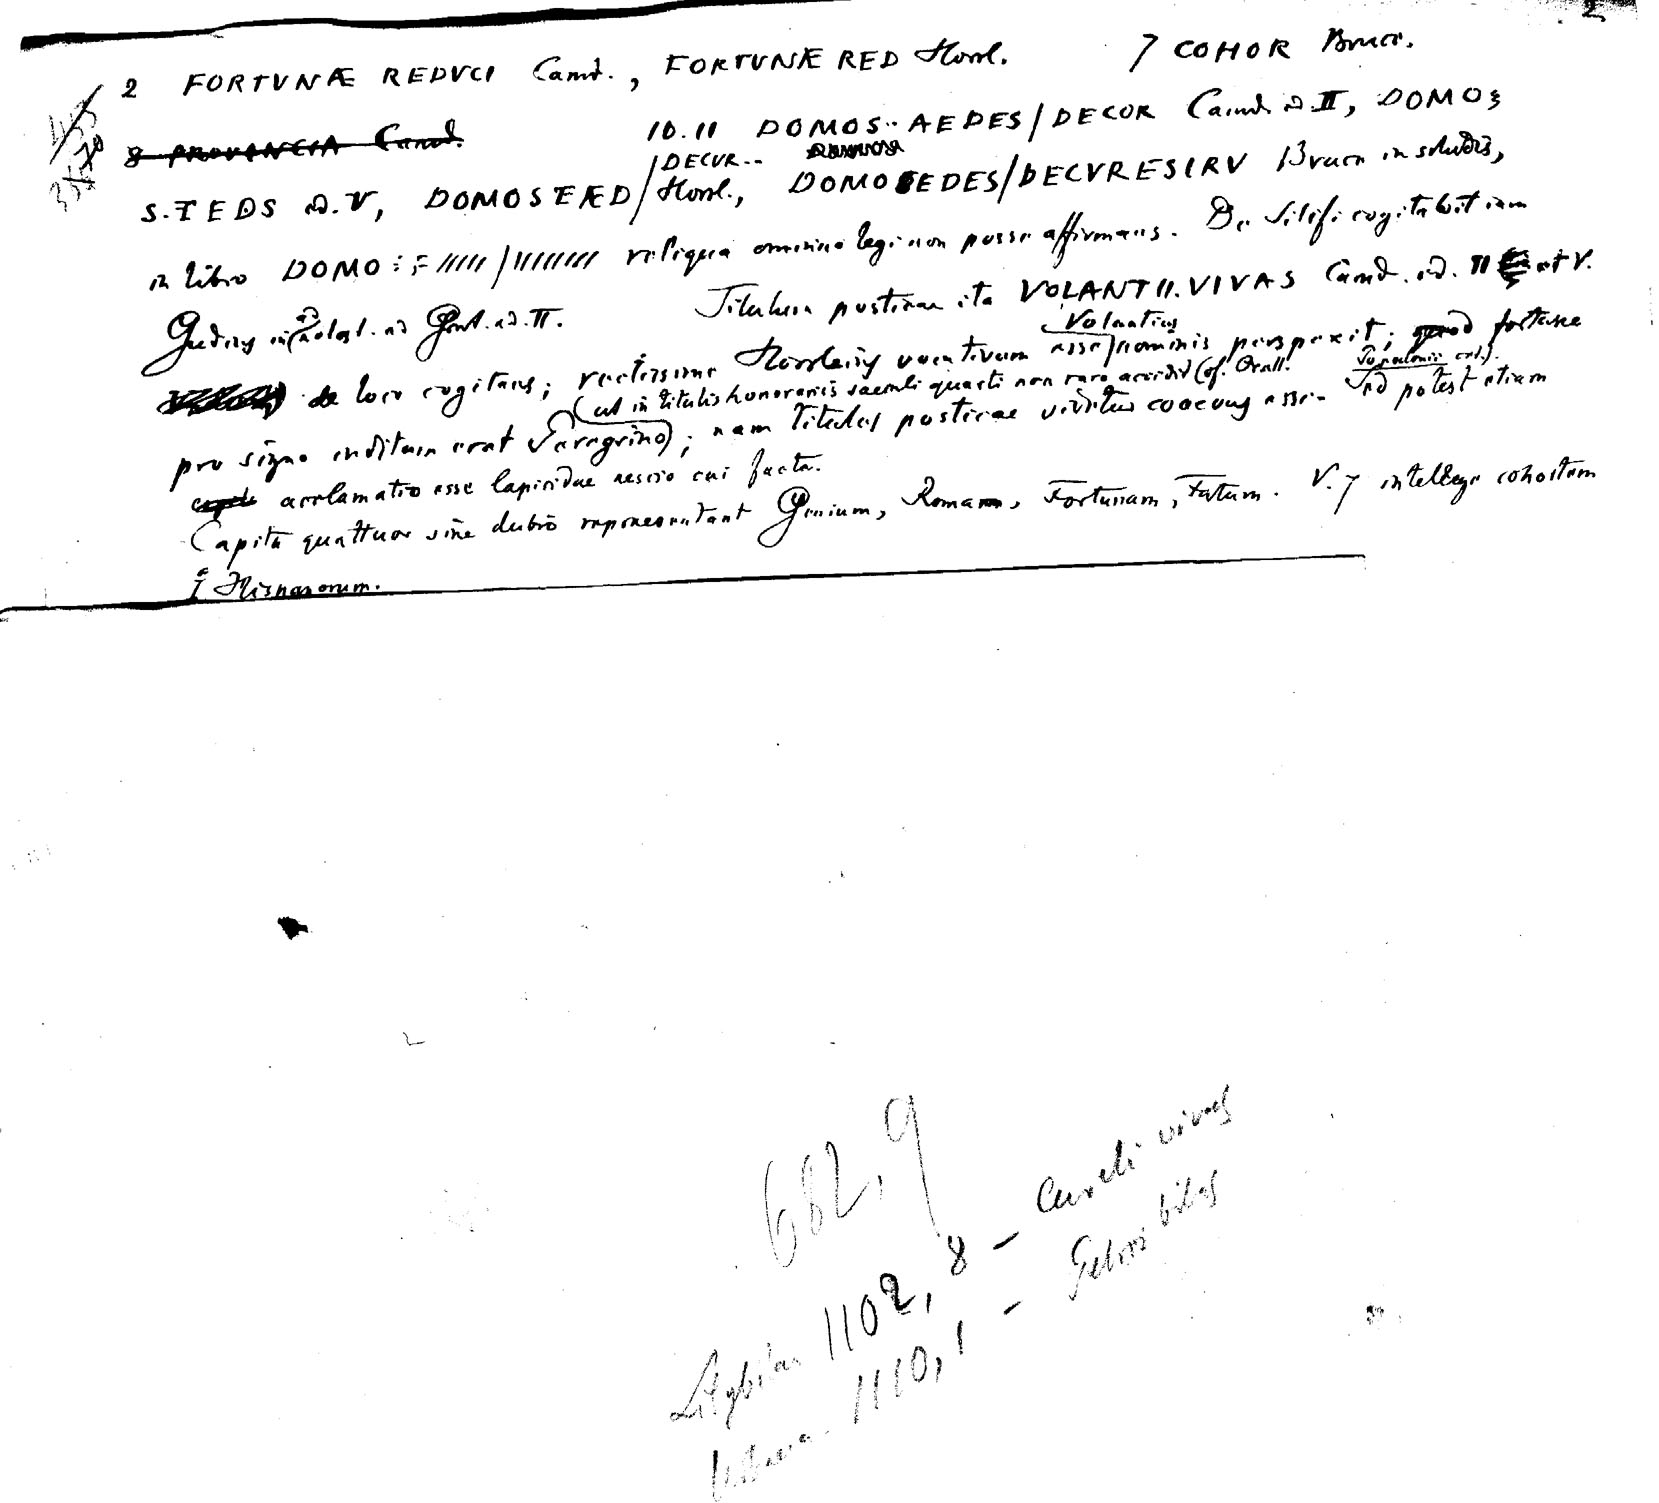 2
2 FORTVNÆ REDVCI Camd., FORTVNÆ RED Horsl. 7 COHOR Bruce.
8 PROVINCIA Camd. 10.11 DOMOS·· AEDES/DECOR Camd. ed. II, DOMOS
S.TEDS ed. V, DOMOSTÆD/DECUR.. Horsl., DOMOSEDES/DECVRESIRV Bruce in schedis,
in libro DOMO
reliqua omnino legi non posse affirmans. De Silifi cogitabit iam
Gudius in ad ed. II. Titulum posticae ita VOLANTII.VIVAS Camd. ed. II et V.
de loco cogitans; rectissime Horsleius vocativum esse nominis Volantius perspexit; quod fortasse
pro signo inditum erat Peregrino (ut in titulis honorariis saeculi quarti non raro accidit (cf. Orell.
); nam titulus posticae videtur coaevus esse. Sed potest etiam
acclamatio esse lapicidae nescio cui facta.
Capita quattuor sine dubio repraesentant Genium, Romam, Fortunam, Fatum. V. 7 intellege cohortem
I Hispanorum.
682,9
1102,8 - Aureli vivas
1110,1 - bibas